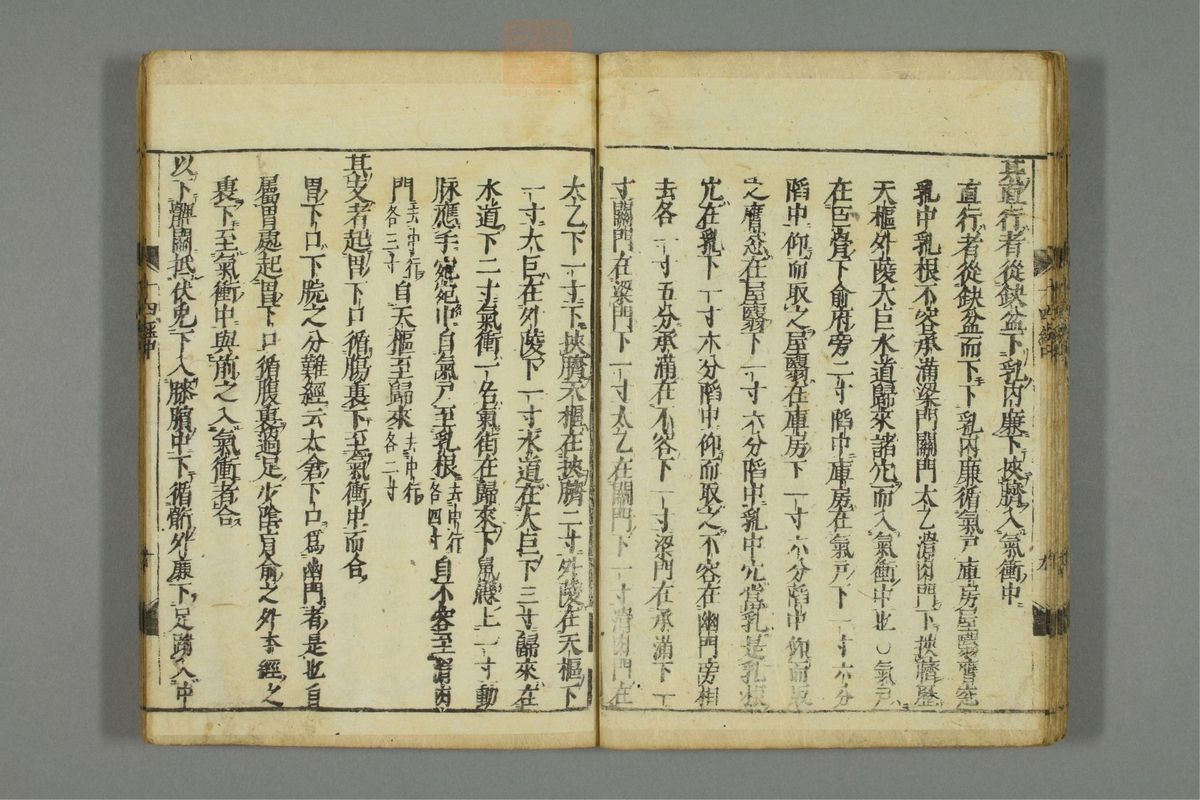 其直行者從缺盆下乳內廉下挾臍入氣衝中
直行者從缺盆而下下乳內廉循氣戶庫房屋翳膺窓
乳中乳根不容承滿梁門關門太乙滑肉門下挾臍歷
天樞外陵大巨水道歸來諸穴而入氣衝中也○氣戶
在巨骨下俞府旁二寸陷中庫房在氣戶下一寸六分
陷中仰而取之屋翳在庫房下一寸六分陷中仰而取
之膺窓在屋翳下一寸六分陷中乳中穴當乳是乳根
穴在乳下一寸六分陷中仰而取之不容在幽門旁相
去各一寸五分承滿在不容下一寸梁門在承滿下一
寸關門在梁門下一寸太乙在關門下一寸滑肉門在
太乙下一寸下挾臍天樞在挾臍二寸外陵在天樞下
一寸大巨在外陵下一寸水道在大巨下三寸歸來在
水道下二寸氣衝一名氣街在歸來下鼠鼷上一寸動
脉應手宛宛中自氣戶至乳根去中行各四寸自不容至滑肉
門去中行各三寸自天樞至歸來去中行各二寸
其支者起胃下口循腸裏下至氣衝中而合
胃下口下脘之分難經云太倉下口爲幽門者是也自
屬胃處起胃下口循腹裏過足少陰肓俞之外本經之
裏下至氣衝中與前之入氣衝者合
以下髀關抵伏兔下入膝臏中下循䯒外廉下足跗入中
十四經中
九
十四經中